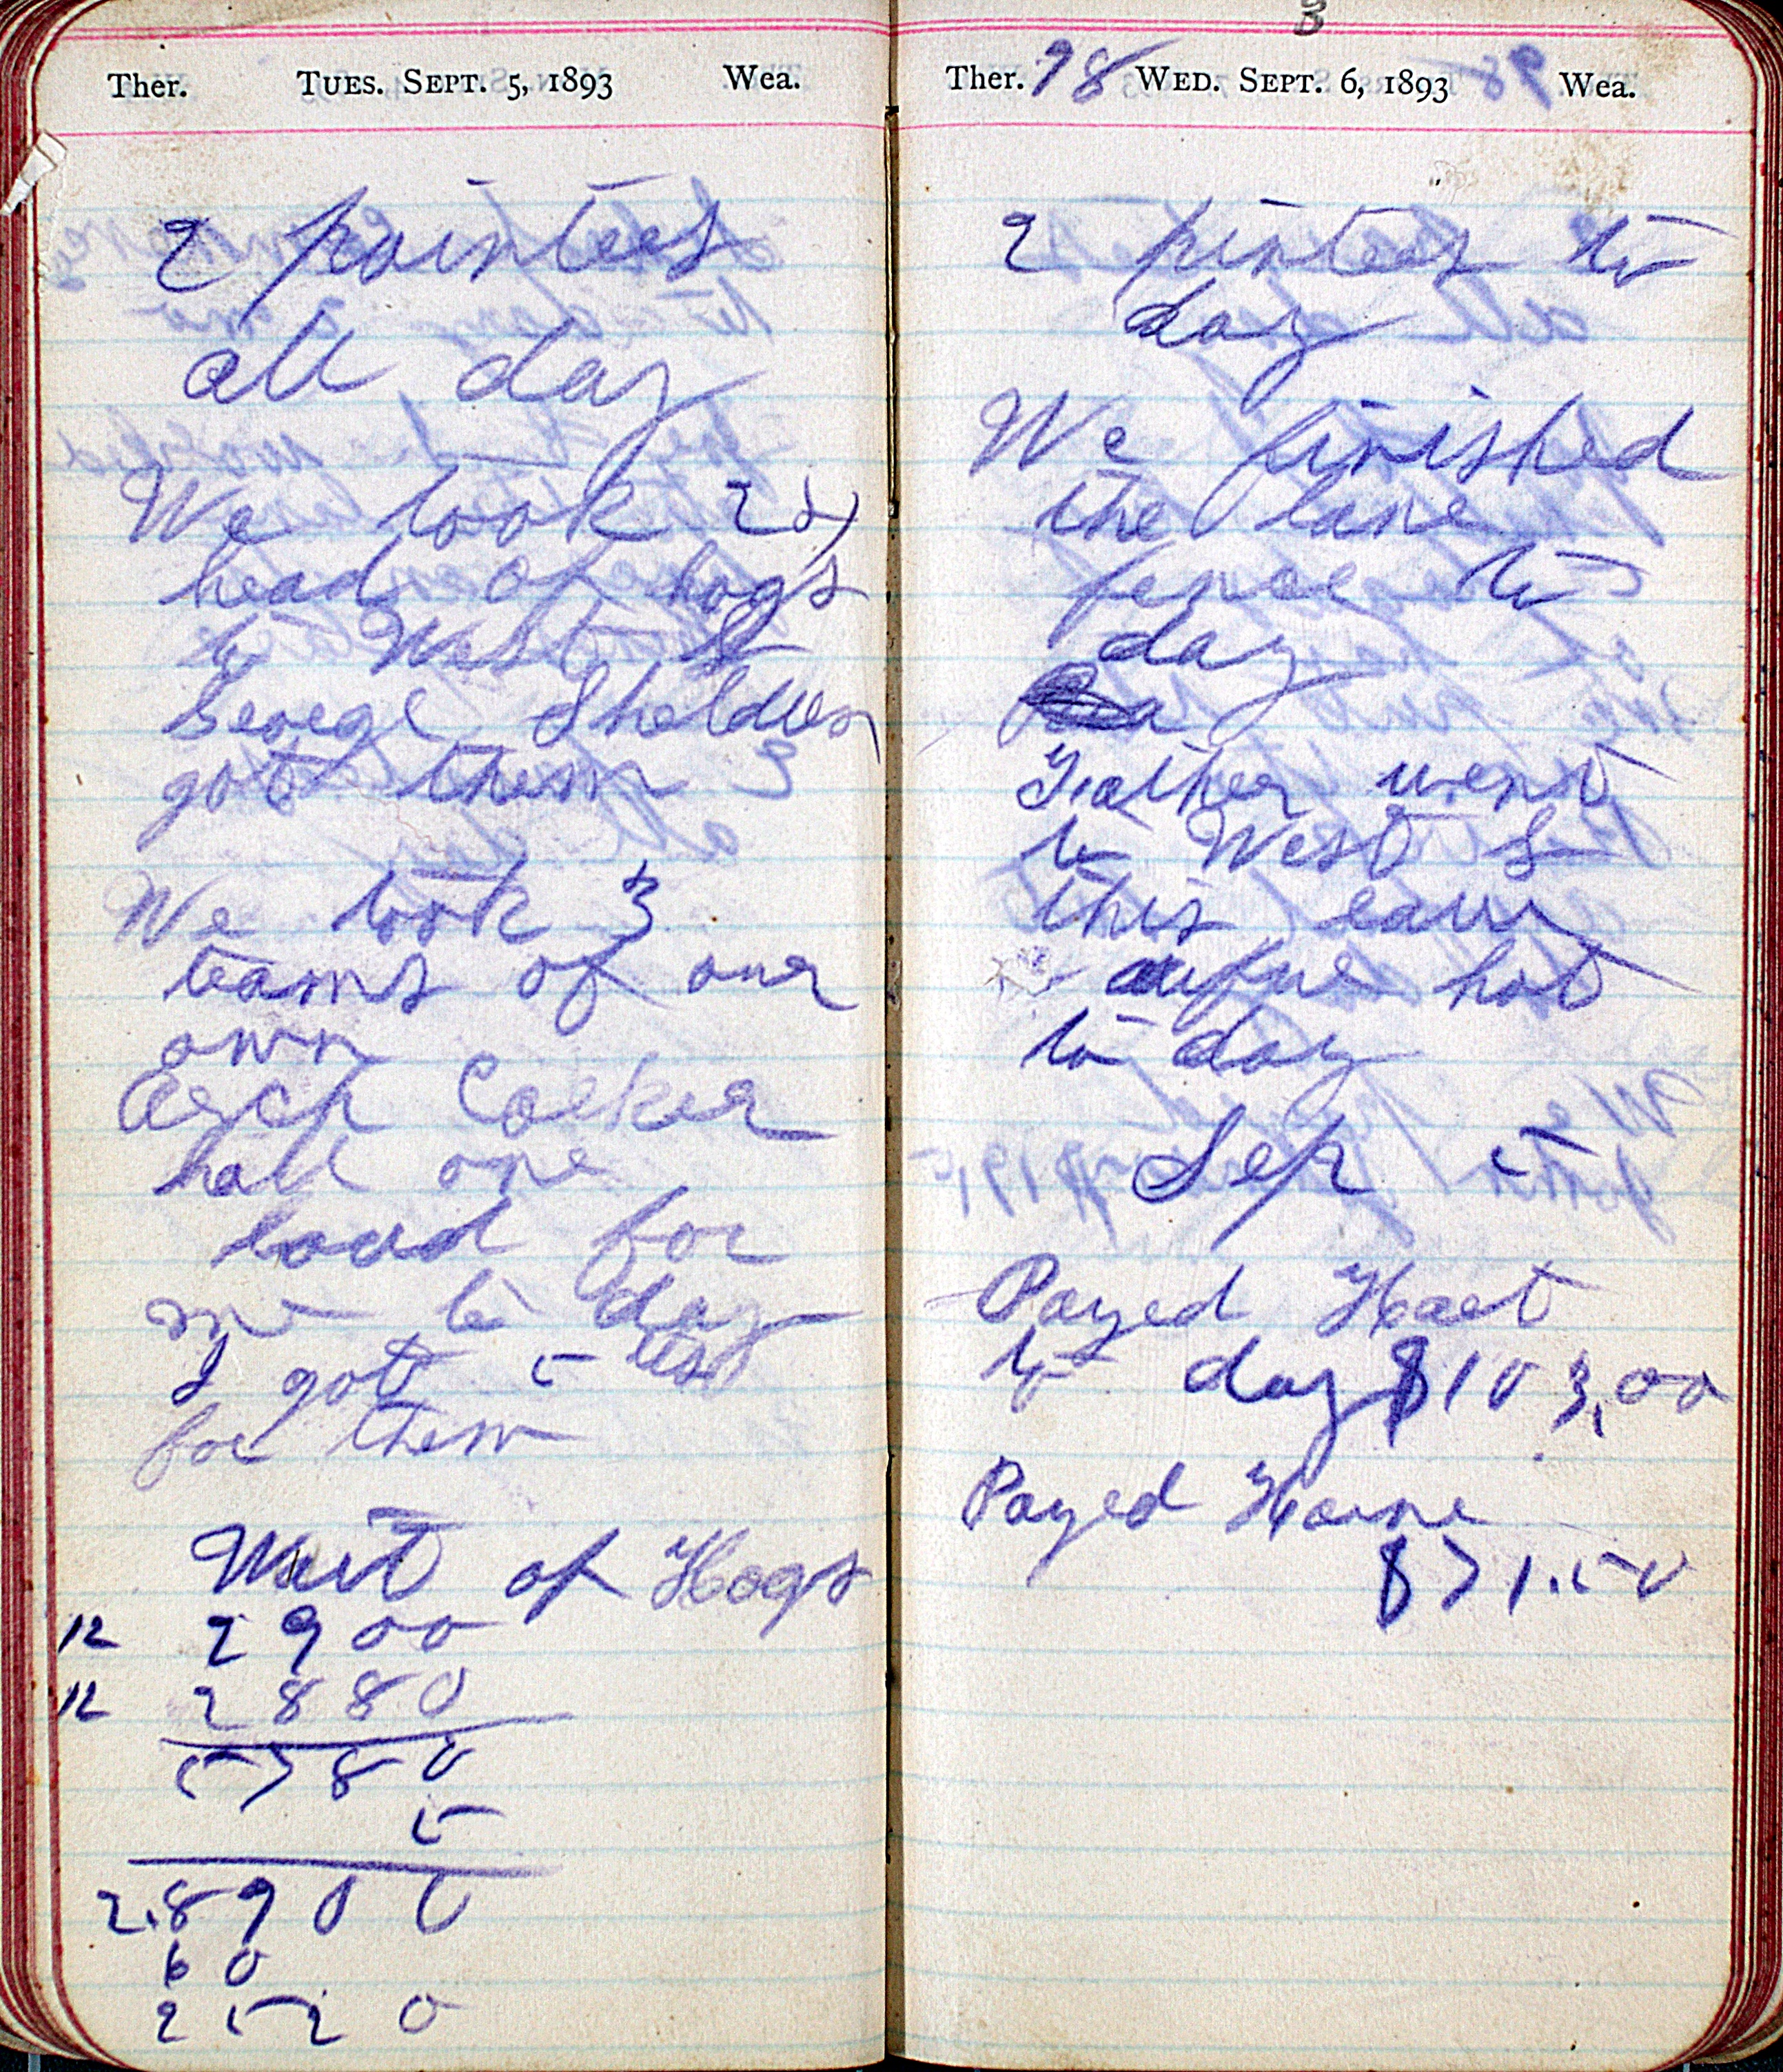 Ther. TUES. SEPT. 5, 1893 Wea.
2 paintees
all day
We took
head of hogs
to West S
George Sheldon
got them
We took 3
teams of our
own
Coeker
hall one
load for
me to day
I got 5
for them
of Hogs
12 2900
12 2880
5780
5
2.8900
60
2520
Ther. 98 WED. SEPT. 6, 1893 Wea.
2 pinters to
day
We finished
the lane
fence to
day
Father went
to West S
this
hot
to day
Sep 5
Payed Haet
to day $103,00
Payed Horne
$71.50